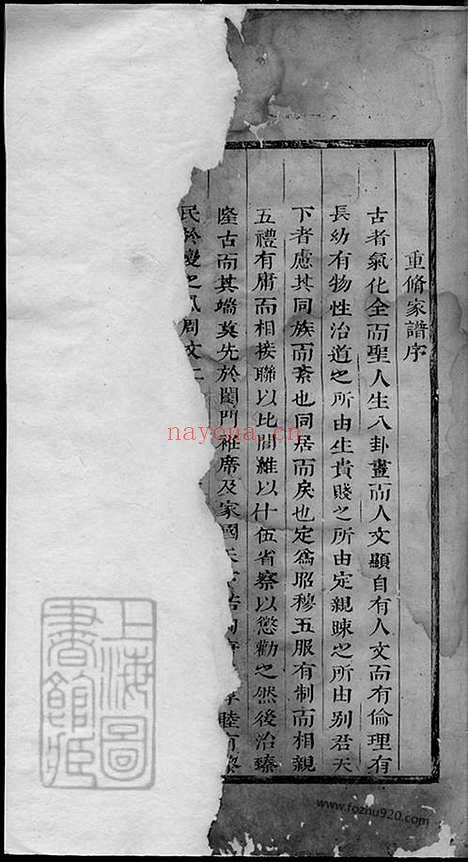 重脩家譜序
古者氣化全而聖人生八卦畫而人文顯自有人文而有倫理有
長幼有物性治道之所由生貴賤之所由定親踈之所由别君天
下者慮其同族而紊也同居而戾也定爲昭穆五服有制而相親
五禮有庸而相接聯以比閭維以什伍省察以懲勸之然後治臻
隆古而其端莫先於閨門袵席及家國
睦而黎
民於變之風周文王
上海圖書館藏
nayona.cn
www.fozhu920.com